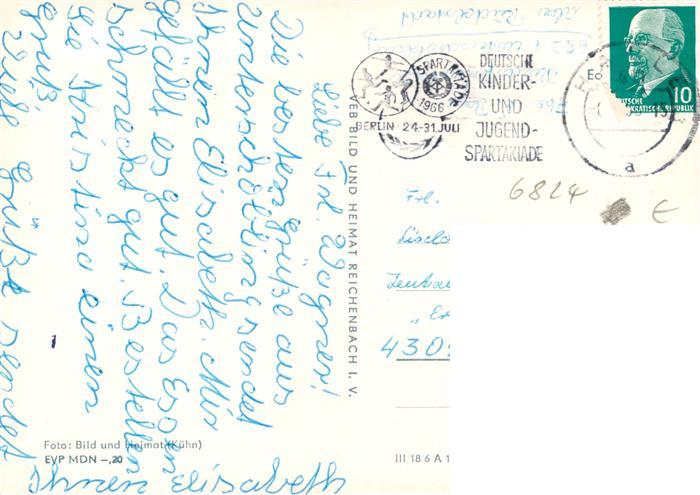 Liebe Frl. Wagner!
Die besten Grüße aus
Unterschöbling sendet
Ihnen Elisabeth. Mir
gefällt es gut. Das Essen
schmeckt gut. Bestellen
Sie Kristina einen
Gruß.
Viele Grüße sendet
Ihnen Elisabeth
Foto: Bild und Heimat (Kühn)
EVP MDN –,20
VEB BILD UND HEIMAT REICHENBACH I. V.
III 18 6 A 1
über Rudolstadt
SPARTAKIADE
1966
BERLIN · 24-31. JULI
DEUTSCHE
KINDER-
UND
JUGEND-
SPARTAKIADE
10
DEUTSCHE
DEMOKRATISCHE REPUBLIK
a
6824
E
Frl.
430